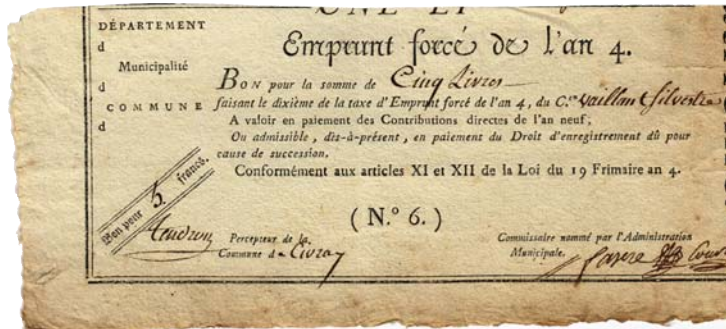 DÉPARTEMENT
d
Municipalité
d
COMMUNE
d
Emprunt forcé de l'an 4.
BON pour la somme de Cinq Livres
faisant le dixième de la taxe d'Emprunt forcé de l'an 4, du C.en Vaillant Silvestre
A valoir en paiement des Contributions directes de l'an neuf;
Ou admissible, dès-à-présent, en paiement du Droit d'enregistrement dû pour
cause de succession.
Conformément aux articles XI et XII de la Loi du 19 Frimaire an 4.
Bon pour 5 francs.
(N.° 6.)
Percepteur de la
Commune de Civray
Commissaire nommé par l'Administration
Municipale.